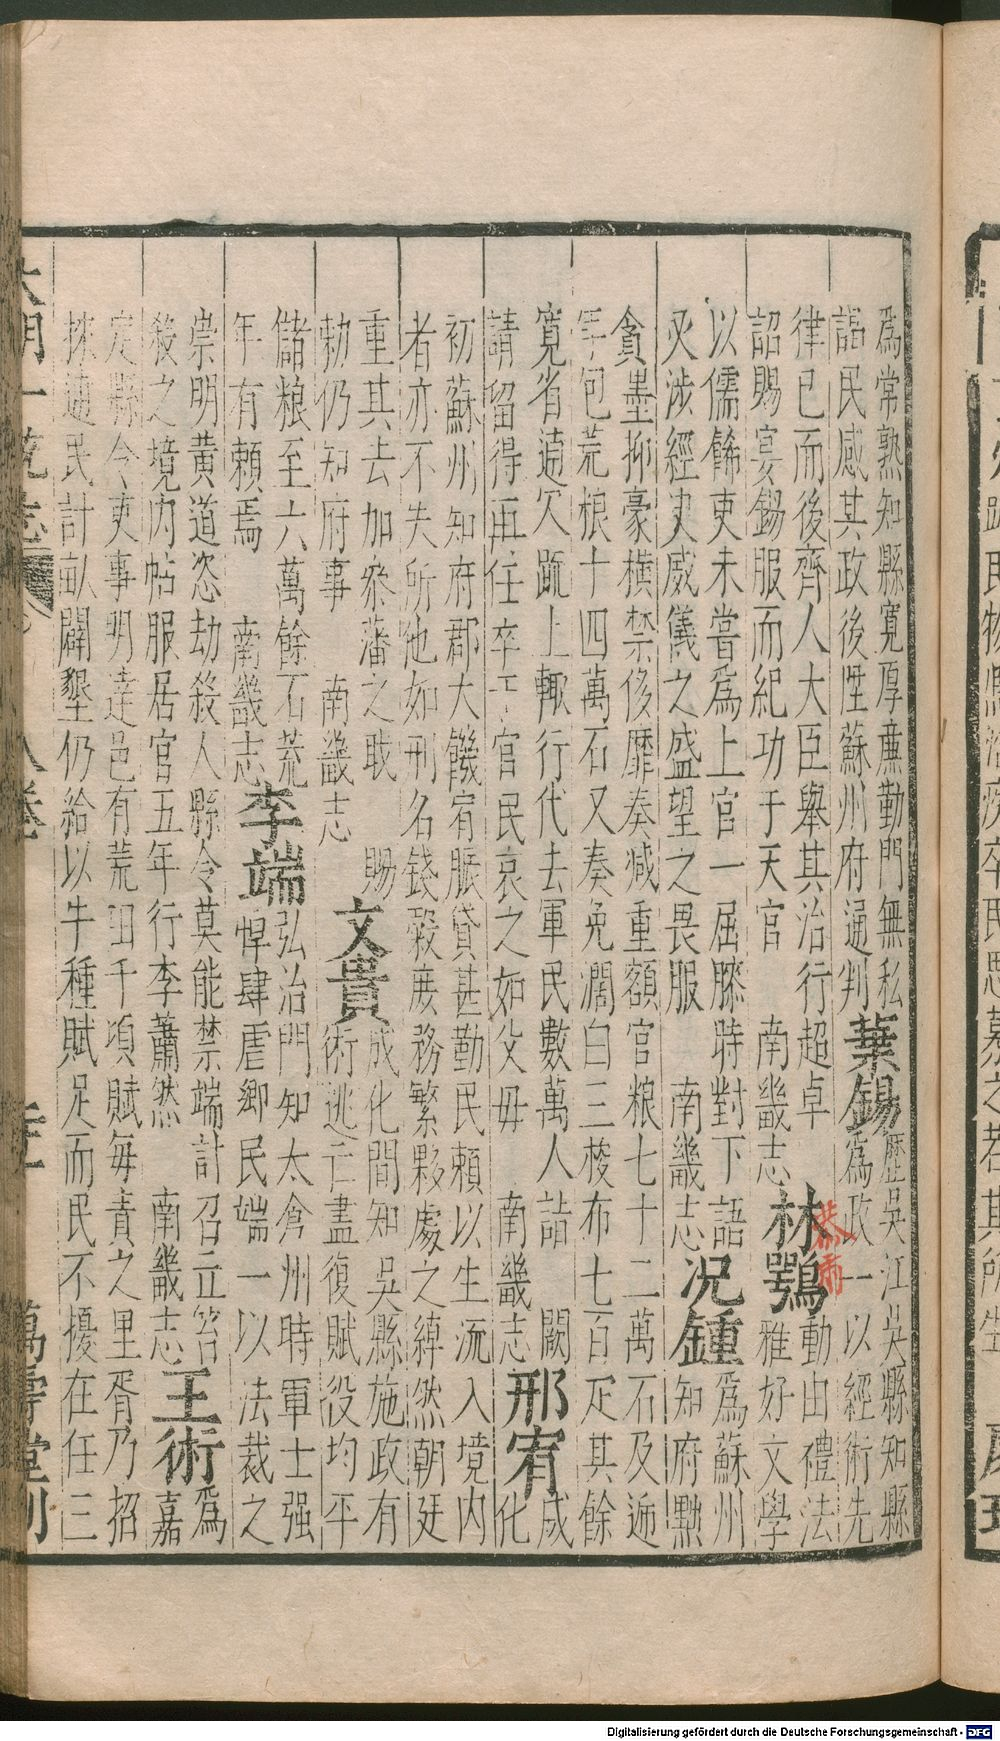 爲常熟知縣寛厚亷勤門無私
謟民感其政後陞蘇州府通判
葉錫
歷吳江吳縣知縣
爲政一以經術先
律已而後齊人大臣舉其治行超卓
詔賜宴錫服而紀功于天官　南畿志
林鶚
恭肅
動由禮法
雅好文學
以儒餙吏未嘗爲上官一屈膝時對下語
灾涉經史威儀之盛望之畏服　南畿志
况鍾
爲蘇州
知府黜
貪墨抑豪横禁侈靡奏减重額官粮七十二萬石及逓
年包荒粮十四萬石又奏免濶白三梭布七百疋其餘
寛省逋欠䟽上輙行代去軍民數萬人詣　闕
請留得再任卒于官民哀之如父母　南畿志
邢宥
成
化
初蘇州知府郡大饑宥賑貸甚勤民頼以生流入境内
者亦不失所他如刑名錢糓庶務繁夥處之綽然朝廷
重其去加叅藩之職　賜
勅仍知府事　南畿志
文貴
成化間知吳縣施政有
術逃亡盡復賦役均平
儲粮至六萬餘石荒
年有頼焉　南畿志
李端
弘治門知太倉州時軍士强
悍肆虐鄉民端一以法裁之
崇明黄道恣劫殺人縣令莫能禁端計召立笞
殺之境内帖服居官五年行李蕭然　南畿志
王術
爲
嘉
定縣令吏事明達邑有荒田千頃賦毎責之里胥乃招
撫逋民計畒闢墾仍給以牛種賦足而民不擾在任三
大明一統志
八卷
萬壽堂刊
Digitalisierung gefördert durch die Deutsche Forschungsgemeinschaft - DFG